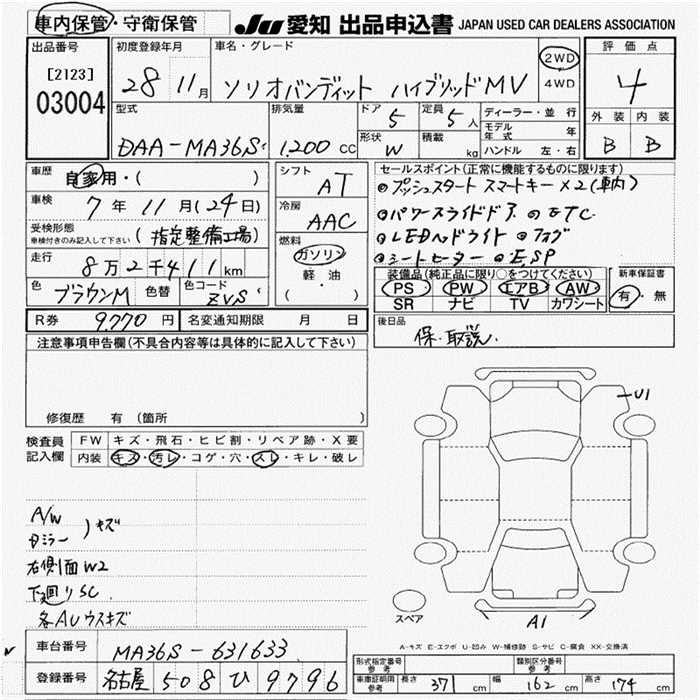 車内保管・守衛保管
JU 愛知 出品申込書 JAPAN USED CAR DEALERS ASSOCIATION
出品番号
[2123]
03004
初度登録年月
28 11月
車名・グレード
ソリオバンディット ハイブリッドMV
2WD
4WD
評価点
4
型式
DAA-MA36S
排気量
1,200 cc
ドア
5
定員
5人
形状
W
積載
kg
ディーラー・並行
モデル年式 年
ハンドル 左・右
外装 内装
B B
車歴
自家用・( )
車検
7年11月(24日)
受検形態
車検付きのみ記入して下さい
(指定整備工場)
走行
8万2千411km
色
ブラウンM
色替
色コード
ZVS
シフト
AT
冷房
AAC
燃料
ガソリン
軽・油
( )
セールスポイント(正常に機能するものに限ります)
◎プッシュスタート スマートキー×2(車内)
◎パワースライドドア ◎ETC
◎LEDヘッドライト ◎フォグ
◎シートヒーター ◎ESP
装備品(純正品に限り○をつけてください)
PS PW エアB AW
SR ナビ TV カワシート
新車保証書
有・無
R券 9,770円
名変通知期限 月 日
後日品
保・取説.
注意事項申告欄(不具合内容等は具体的に記入して下さい)
修復歴 有(箇所 )
検査員
記入欄
FW キズ・飛石・ヒビ割・リペア跡・X要
内装 キズ・汚レ・コゲ・穴・スレ・キレ・破レ
A/W
ミラー )キズ
右側面W2
下廻りSC
各AUウスキズ
U1
スペア
A1
A-キズ E-エクボ U-凹み W-補修跡 S-サビ C-腐食 XX-交換済
車台番号 MA36S-631633
登録番号 名古屋 508 ひ 9796
形式指定番号
参考
類別区分番号
参考
車庫証明用
参考
長さ 371 cm 幅 162 cm 高さ 174 cm